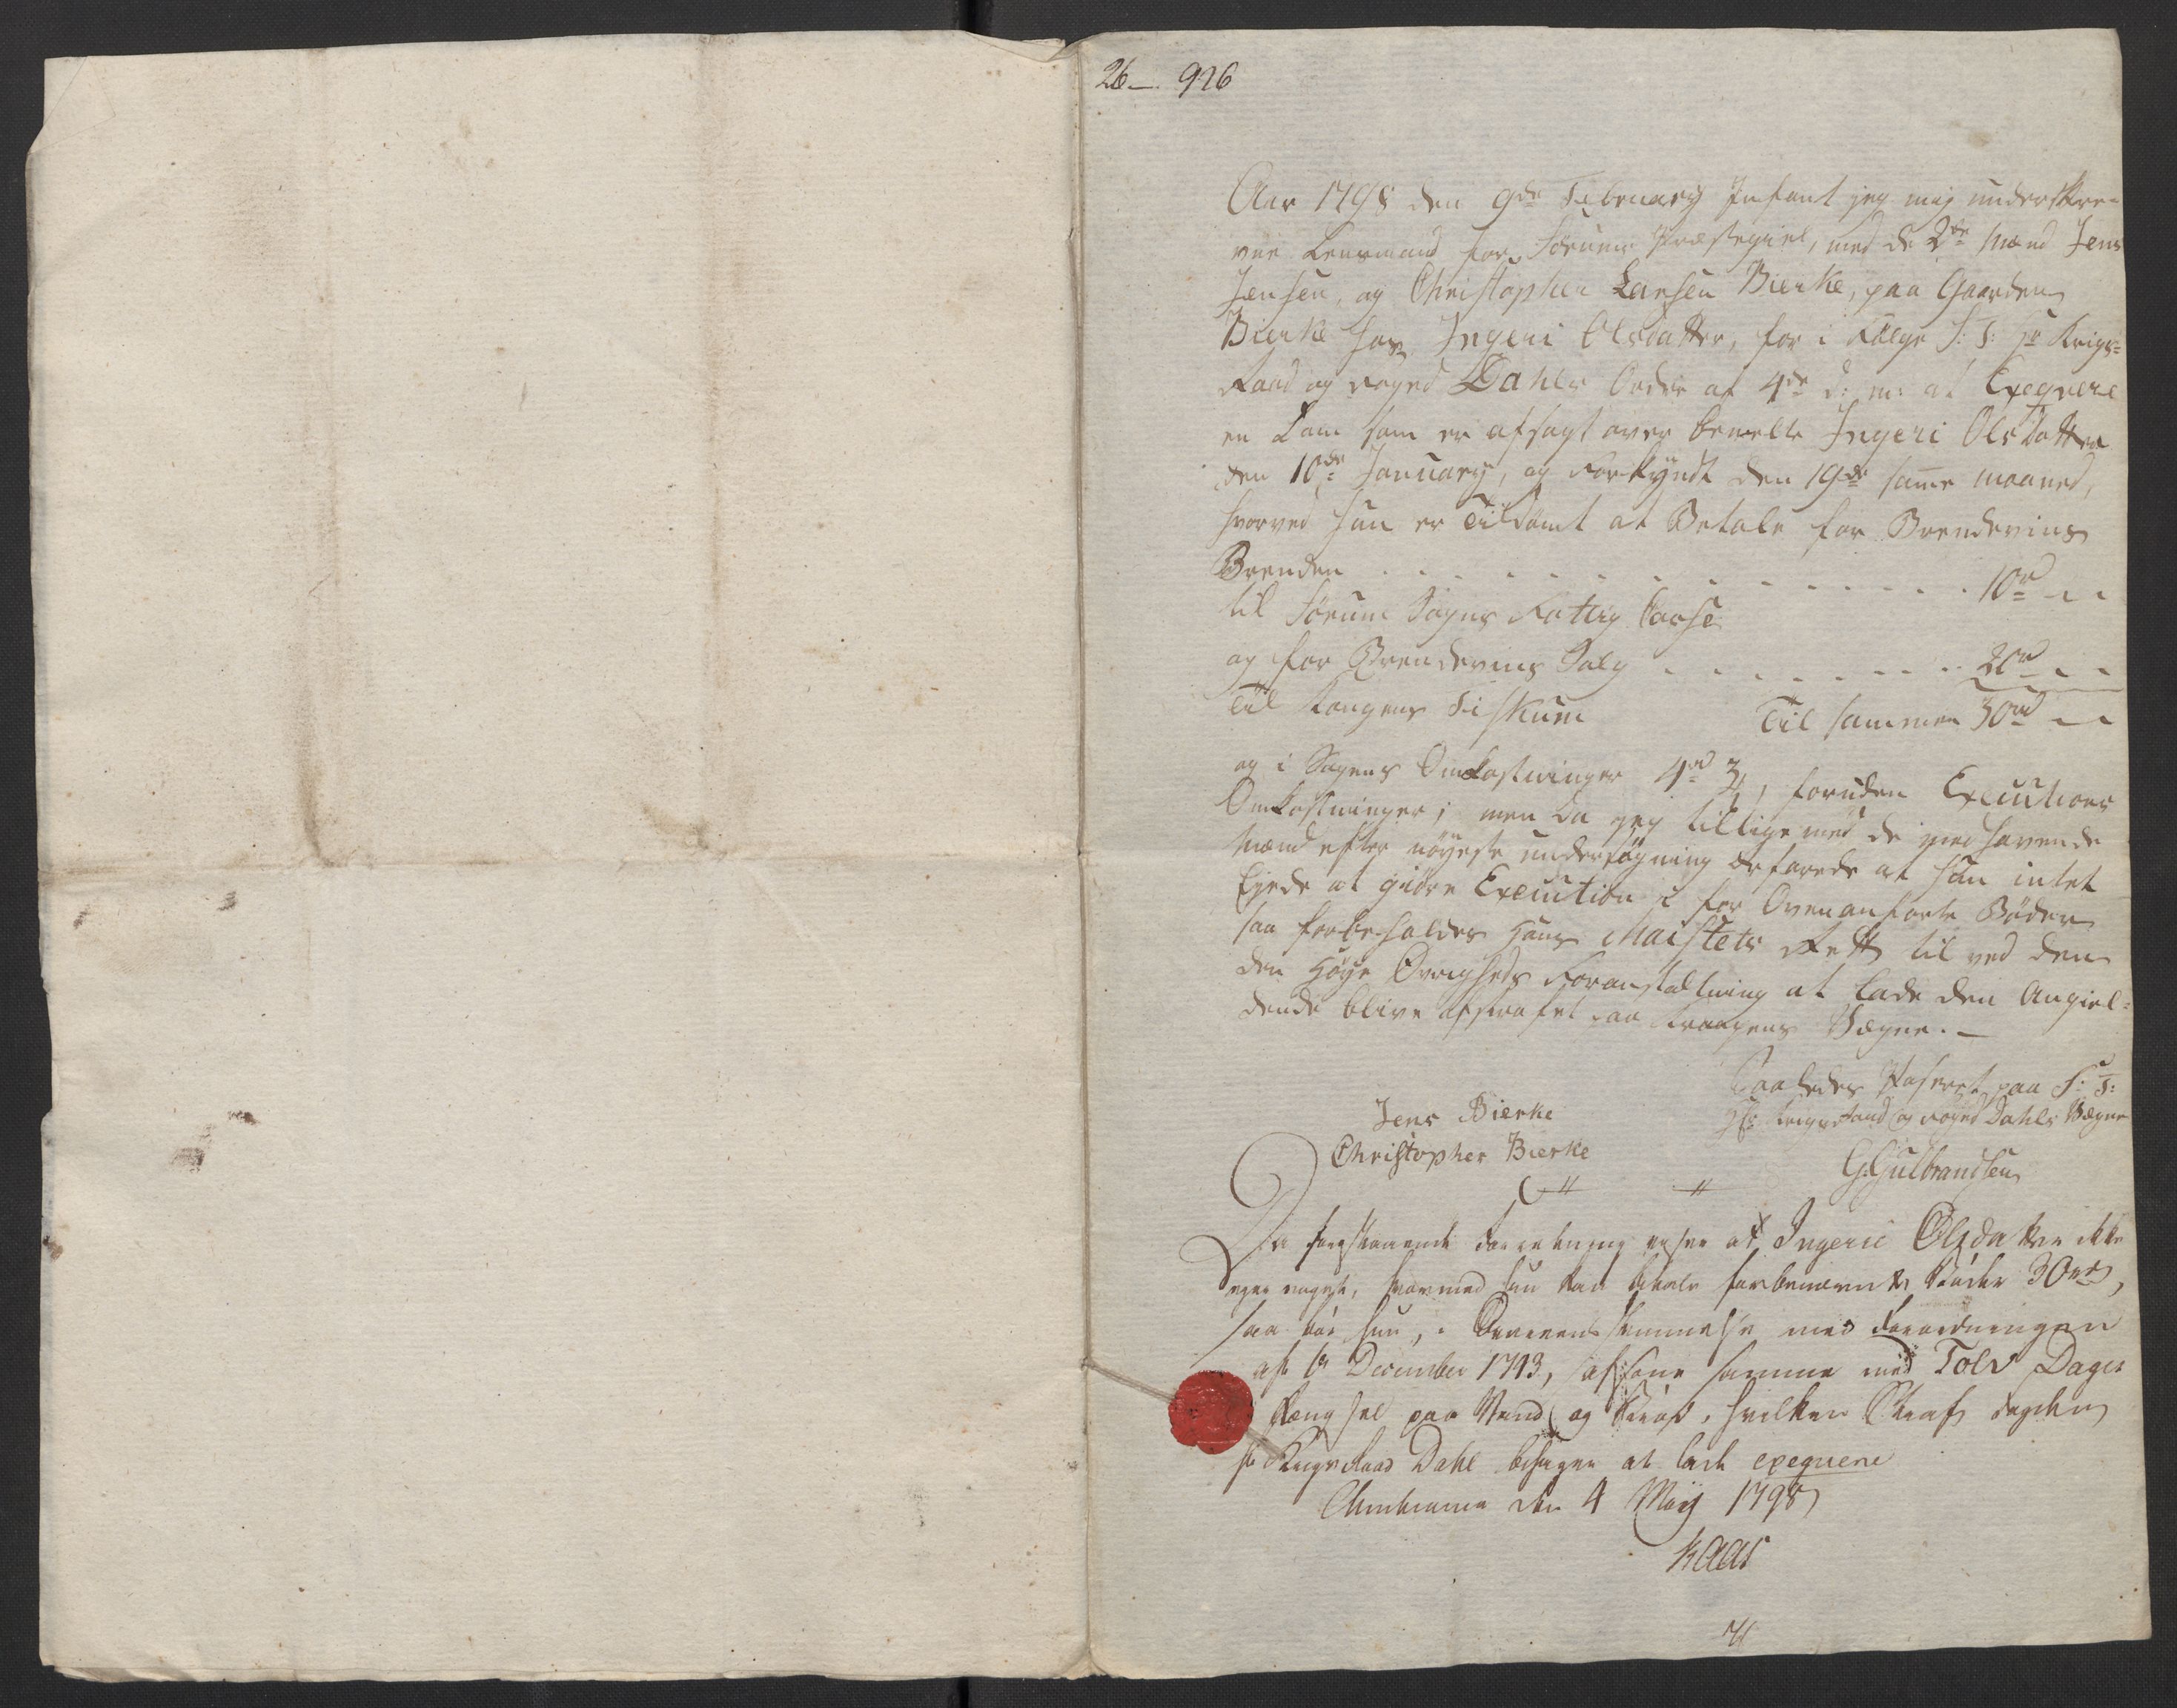 26 — 926
Aar 1798 den 9de February Infant jeg mig underskre-
vne Lensmand for Sørum Præstegiel, med de 2de Mænd Jens
Jensen, og Christopher Larsen Bierke, paa Gaarden
Bierke hos Ingeri Olsdatter, for i Følge S: T: Hr Krigs-
Raad og Foged Dahls Ordre af 4de d: m: at Exeqvere
en Dom som er afsagt over bemelte Ingeri Olsdatter
den 10de January, og Forkyndt den 19de samme maaned,
hvorved hun er Tildømt at Betale for Brendevins
Brenden . . . . . . . . . . 10rd - -
til Sørum Sogns Fattig Casse
og for Brendevins Salg . . . . . . . 20rd - -
Til Kongens Fiskum Til sammen 30rd - -
og i Sagens Omkostninger 4rd 3, foruden Executions
Omkostninger; men da jeg tillige med de medhavende
Mænd efter nøyeste undersøgning erfarede at hun intet
Eyede at giøre Execution i for Ovenanførte Bøder
saa forbeholdes Hans Maistets Rett til ved den
den Høye Øvrigheds Foranstaltning at lade den Angiel-
dende blive afstraffet paa Kroppens Vægne. —
Saaledes Passeret paa S: T:
Jens Bierke Hr: Krigsraad og Foged Dahls Vægne
Christopher Bierke G: Gulbrandsen
Da forestaaende Forretning viser at Ingerie Olsdatter ikke
eyer noget, hvormed hun kan betale forbenævnte Bøder 30rd,
saa bør hun, i Overeensstemmelse med Forordningen
af 6 December 1743, afsone samme med Tolv Dages
Fængsel paa Vand og Brød, hvilken Straf
Hr Krigsraad Dahl behager at lade exeqvere
Christiania den 4 Maij 1798
Kaas